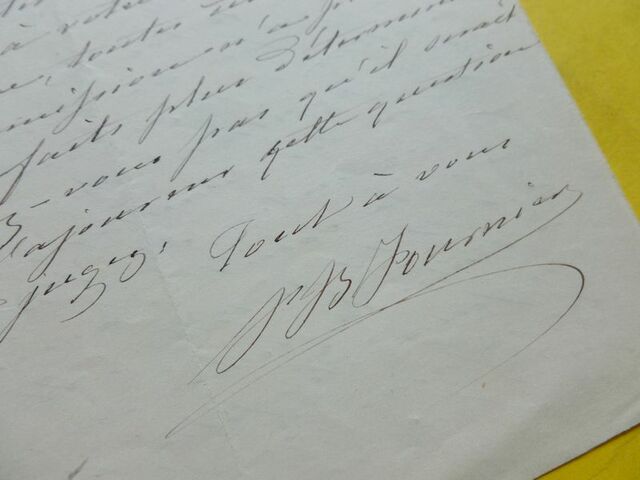 à votre
, toutes
mission n'a
faits plus déterminé
-vous pas qu'il serait
ajourner cette question
jugez, Tout à vous
JB Fournier